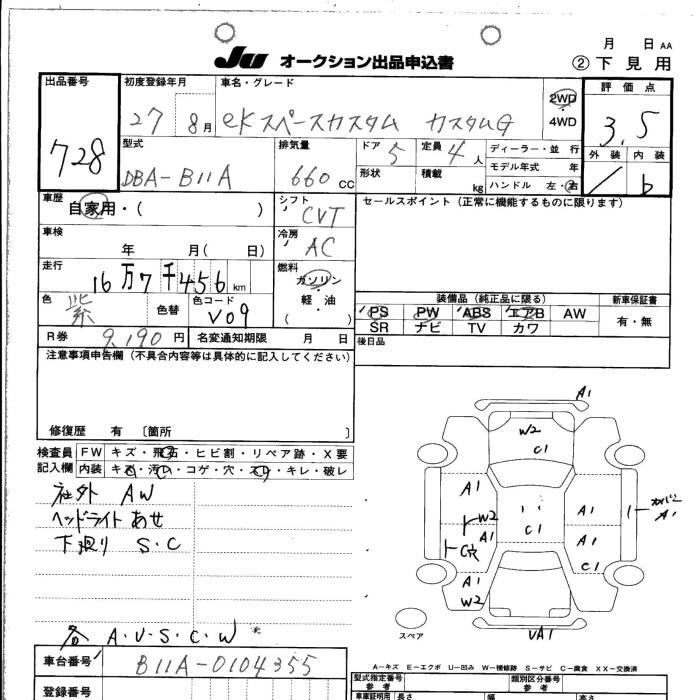 Ju オークション出品申込書
月 日 AA
② 下見用
出品番号
728
初度登録年月
27 8月
車名・グレード
eKスペースカスタム カスタムG
2WD
4WD
評価点
3.5
外装 内装
／ b
型式
DBA-B11A
排気量
660 CC
ドア 5
形状
定員 4 人
積載 kg
ディーラー・並行
モデル年式 年
ハンドル 左・右
車歴
自家用・( )
シフト
CVT
セールスポイント(正常に機能するものに限ります)
車検
年 月( 日)
冷房
AC
走行
16万7千456km
燃料
ガソリン
・
軽・油
( )
色
紫
色替
色コード
V09
装備品(純正品に限る)
PS PW ABS エアB AW
SR ナビ TV カワ
新車保証書
有・無
R券 9,190円
名変通知期限 月 日
後日品
注意事項申告欄(不具合内容等は具体的に記入してください)
修復歴 有 〔箇所 〕
検査員
記入欄
FW キズ・飛石・ヒビ割・リペア跡・X要
内装 キズ・汚れ・コゲ・穴・スレ・キレ・破レ
社外 AW
ヘッドライト あせ
下廻り S・C
各 A・U・S・C・W
A1
W2
C1
A1
W2
A1
C1
A1
A1
カバー
A1
C穴
A1
W2
C1
UA1
スペア
A-キズ E-エクボ U-凹み W-補修跡 S-サビ C-腐食 XX-交換済
車台番号
B11A-0104355
登録番号
型式指定番号
参考
類別区分番号
参考
車庫証明用 長さ 幅 高さ
参考